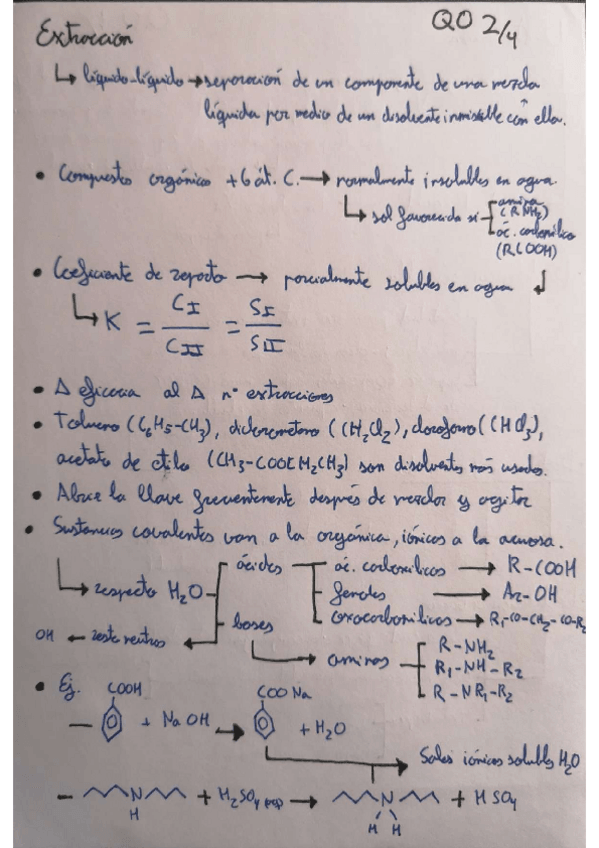 QO 2/4
Extracción
↳ líquido-líquido → separación de un componente de una mezcla
líquida por medio de un disolvente inmiscible con ella.
• Compuestos orgánicos +6 át. C. → normalmente insolubles en agua
↳ sol favorecida si amina (RNH2)
ác. carboxílico (RCOOH)
• Coeficiente de reparto → parcialmente solubles en agua ↲
↳ K = CI / CII = SI / SII
• Δ eficacia al Δ nº extracciones
• Tolueno (C6H5-CH3), diclorometano (CH2Cl2), cloroformo (CHCl3),
acetato de etilo (CH3-COOCH2CH3) son disolventes más usados.
• Abrir la llave frecuentemente después de mezclar y agitar
• Sustancias covalentes van a la orgánica, iónicos a la acuosa.
↳ respecto H2O ácidos ác. carboxílicos → R-COOH
fenoles → Ar-OH
oxocarbonílicos → R1-CO-CH2-CO-R2
OH ← resto neutros ← bases
↳ aminas R-NH2
R1-NH-R2
R-NR1-R2
• Ej. COOH COO Na
- + NaOH → + H2O
Sales iónicas solubles H2O
- N H + H2SO4 → N H H + HSO4